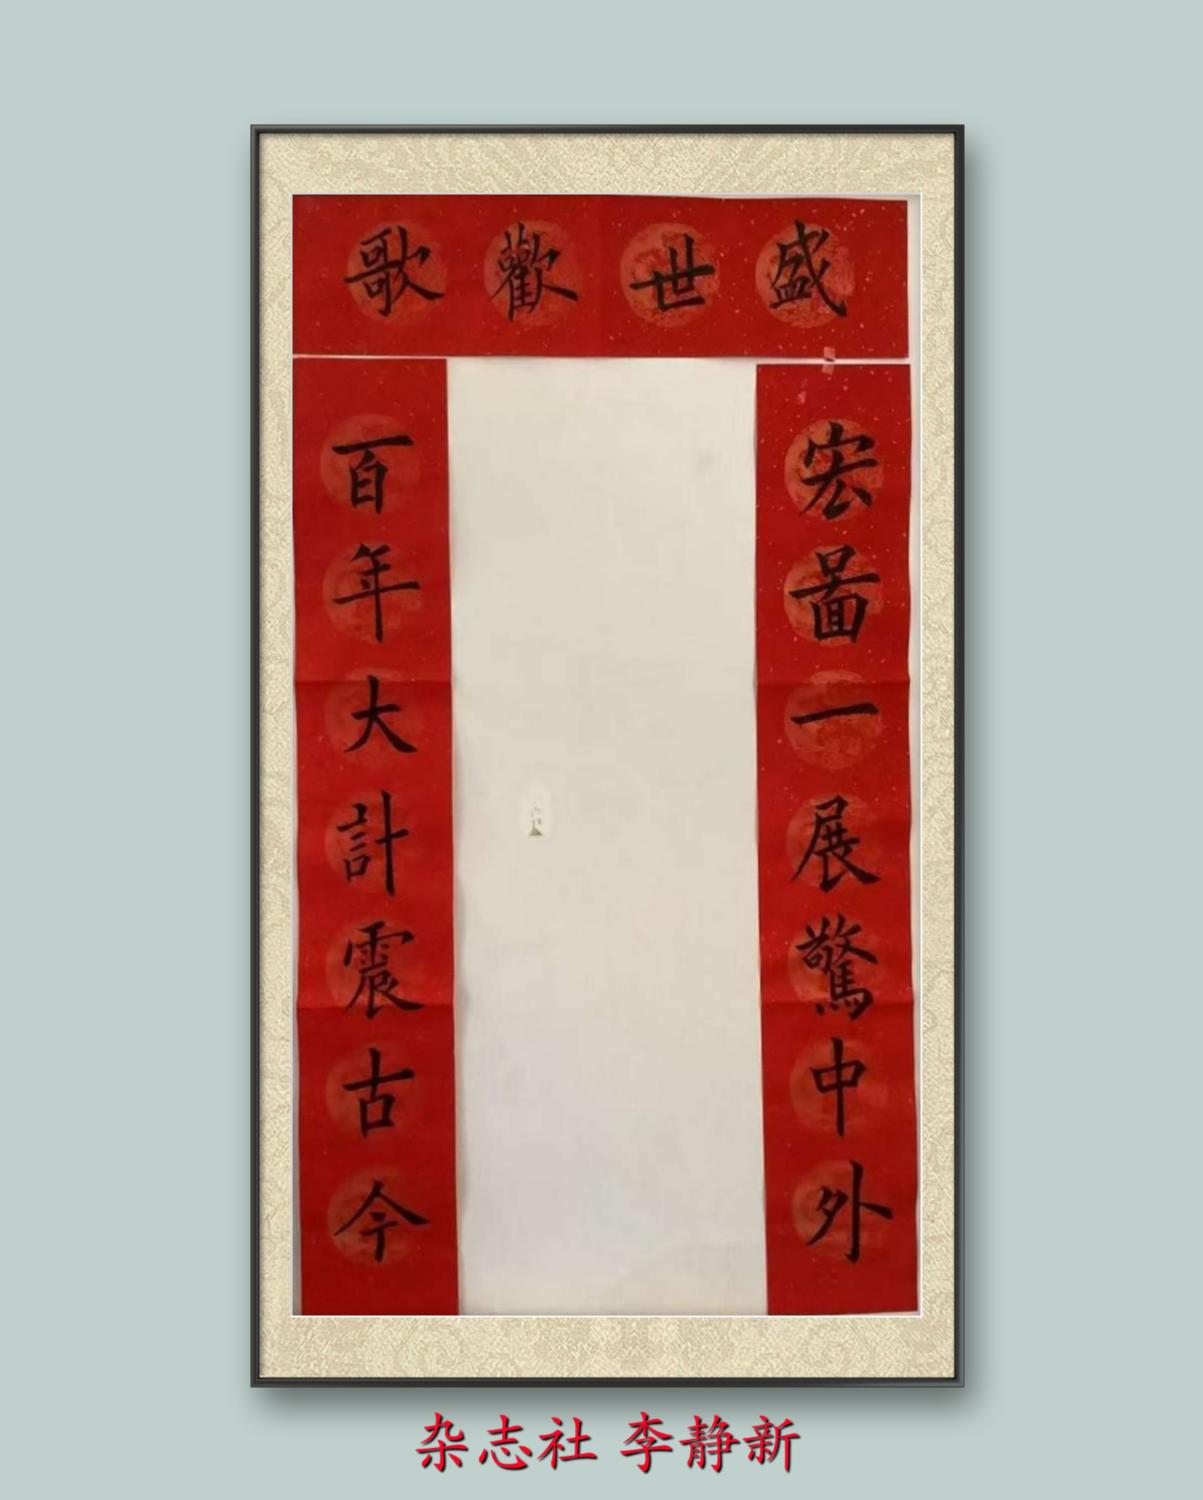 盛世歡歌
宏啚一展驚中外
百年大計震古今
杂志社 李静新